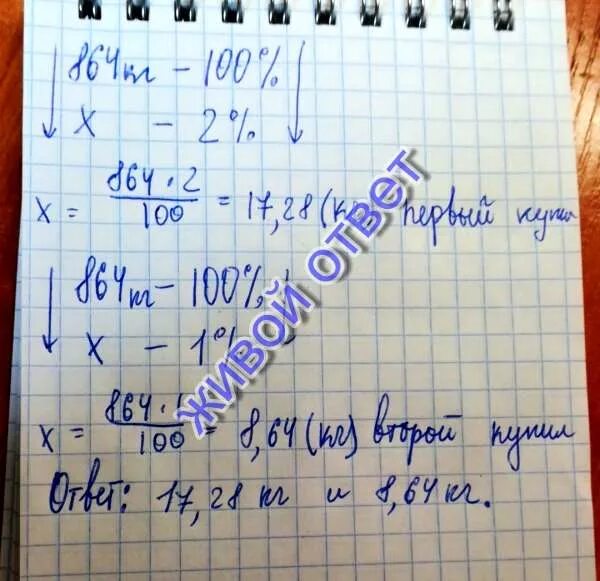 864 кг – 100%
х – 2%
х = 864 · 2 / 100 = 17,28 (кг) первый купил
864 кг – 100%
х – 1%
х = 864 · 1 / 100 = 8,64 (кг) второй купил
Ответ: 17,28 кг и 8,64 кг.
ЖИВОЙ ОТВЕТ